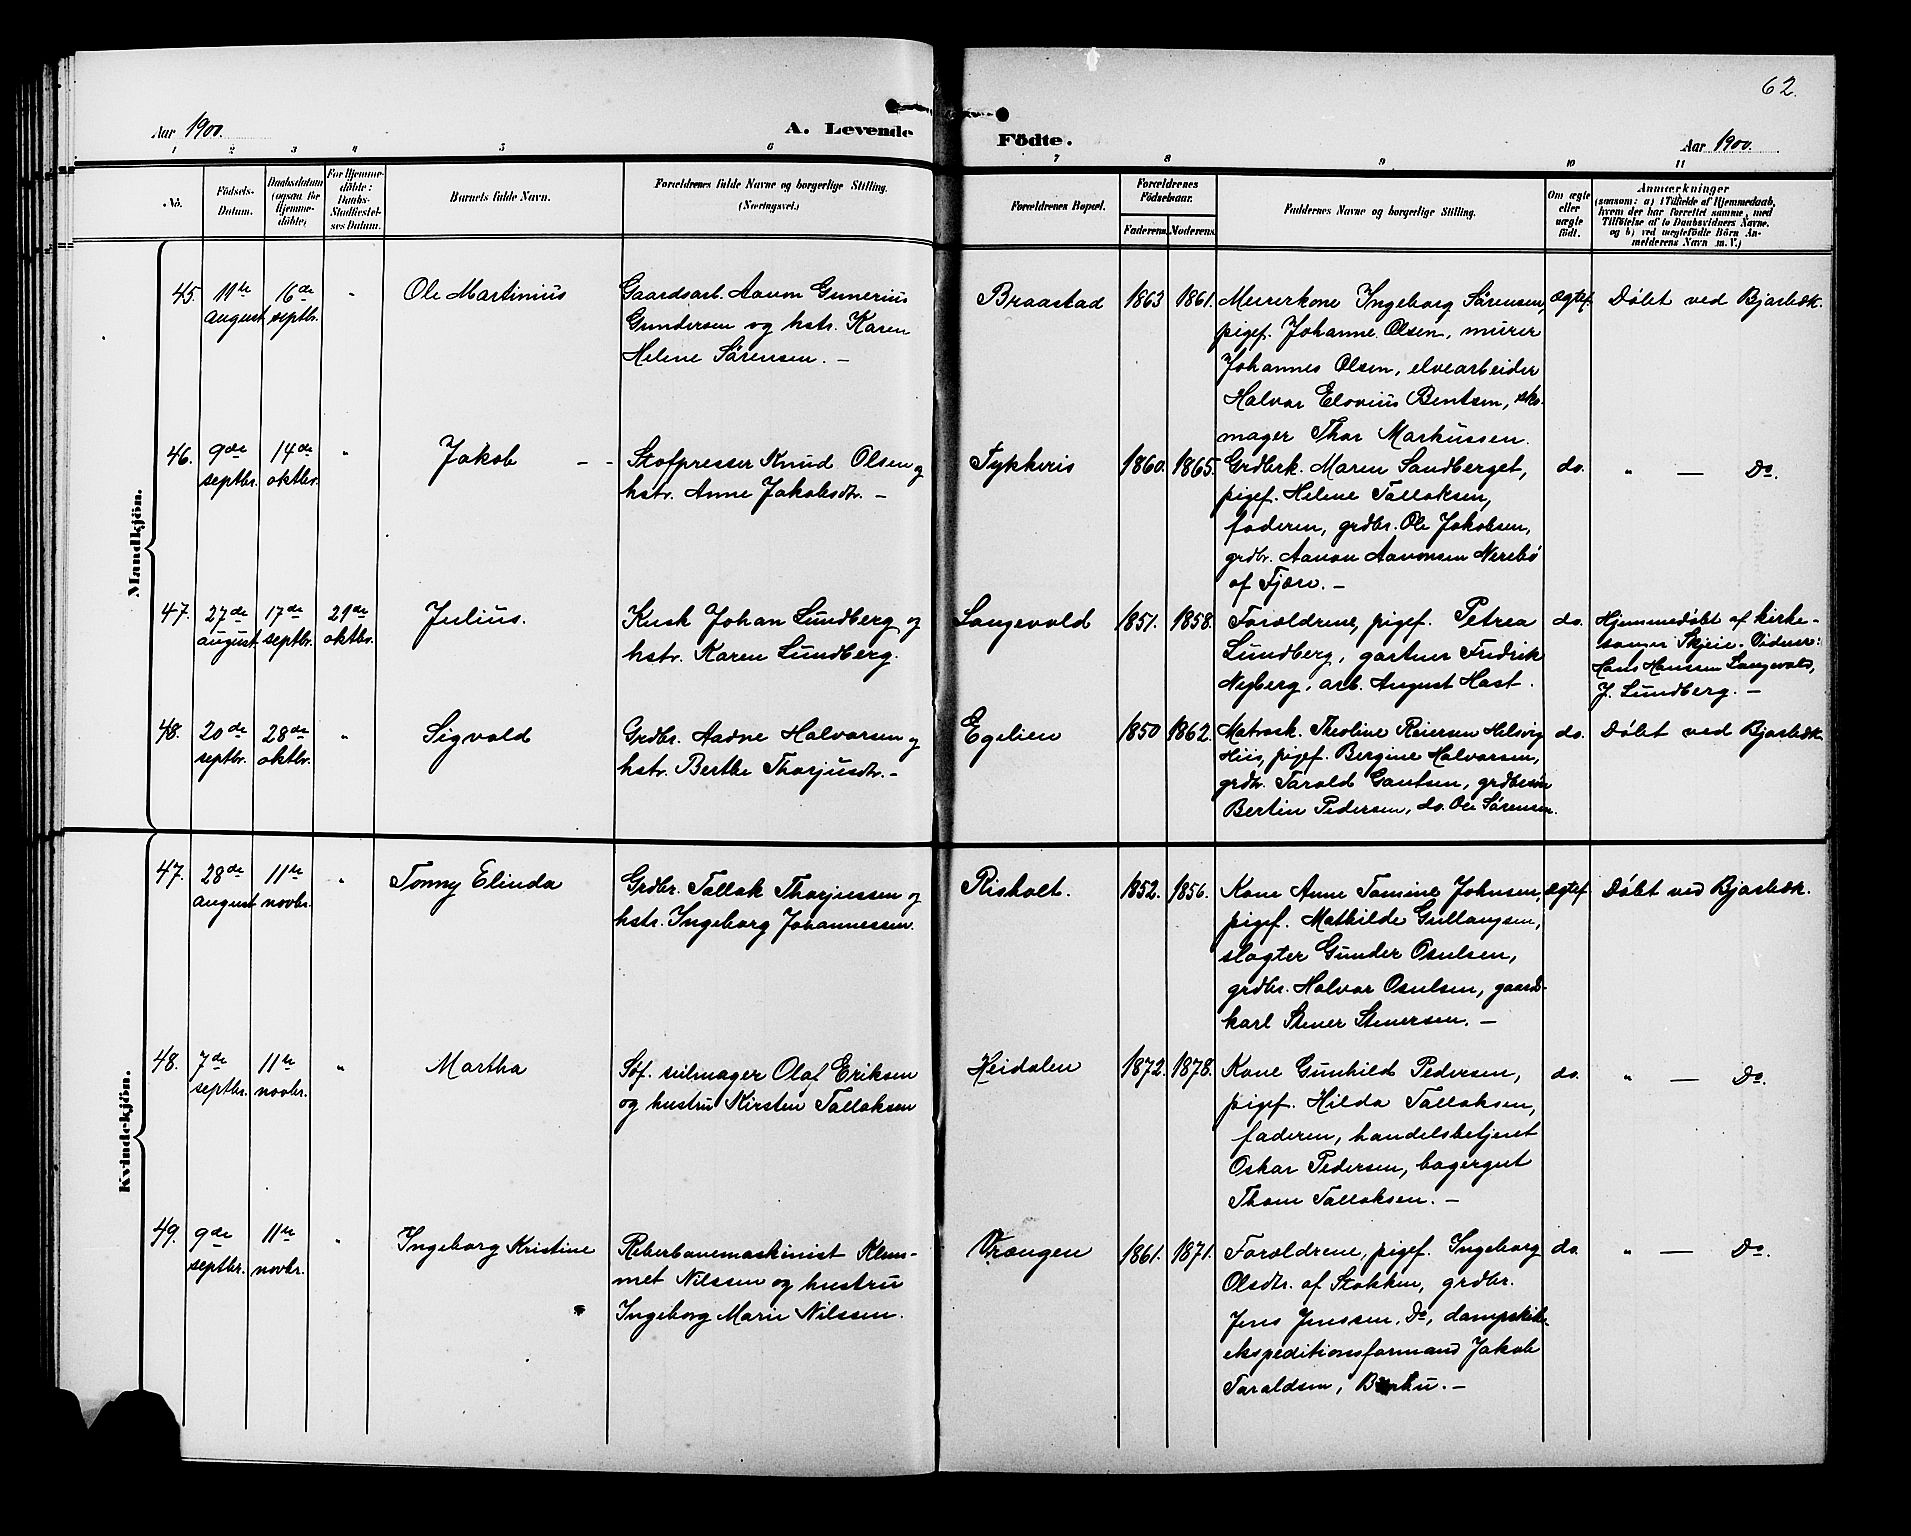 62.
Aar 1900.
A. Levende
Födte.
Aar 1900.
1 2 3 4 5 6 7 8 9 10 11
No.
Födsels-
Datum.
Daabsdatum
(ogsaa for
Hjemme-
döbte)
For Hjemme-
döbte:
Daabs-
Stadfæstel-
ses Datum.
Barnets fulde Navn.
Forældrenes fulde Navne og borgerlige Stilling.
(Næringsvei.)
Forældrenes Bopæl.
Forældrenes
Födselsaar.
Faderens.
Moderens.
Faddernes Navne og borgerlige Stilling.
Om ægte
eller
uægte
født.
Anmærkninger
(saasom: a) i Tilfælde af Hjemmedaab,
hvem der har forrettet samme, med
Tilföielse af to Daabsvidners Navne,
og b) ved uægtefödte Börn An-
melderens Navn m. V.)
Mandkjön.
45.
11te
august
16de
septbr.
"
Ole Martinius
Gaardsarb. Aavon Gunerius
Gundersen og hstr. Karen
Helene Sørensen. —
Braastad
1863
1861.
Murerkone Ingeborg Sørensen,
pigef. Johanne Olsen, murer
Johannes Olsen, elvearbeider
Halvor Elovius Bentsen, sko-
mager Thor Markussen.
Ægtef.
Døbt ved Bjasbæk.
46.
9de
septbr.
14de
oktbr.
"
Jakob — —
Stofpresser Knud Olsen og
hstr. Anne Jakobsdtr. —
Tykheris
1860.
1865.
Grdbrk. Maren Sandberget,
pigef. Helene Tallaksen,
faderen, grdbr. Ole Jakobsen,
grdbr. Aavon Aavonsen Nerebø
af Fjære. —
do.
" — Do.
47.
27de
august
17de
septbr.
21de
oktbr.
Julius.
Kusk Johan Lundberg og
hstr. Karen Lundberg.
Langevold
1851.
1858.
Forældrene, pigef. Petrea
Lundberg, gartner Fredrik
Nyberg, arb. August Hast.
do.
Hjemmedøbt af kirke-
sanger Skjeie. Vidner:
Hans Hansen Langevold,
J. Lundberg. —
48.
20de
septbr.
28de
oktbr.
"
Sigvald
Grdbr. Aadne Halvorsen og
hstr. Berthe Thorjusdtr. —
Egelien
1850
1862.
Matrosk. Theoline Reiersen Helvig
Hiis, pigef. Bergine Halvorsen,
grdbr. Tarald Gautsen, grdbesøn
Bertin Pedersen, do. Ole Sørensen.
do.
Døbt ved Bjasbæk
Kvindekjön.
47.
28de
august
11te
novbr.
"
Tonny Elinda
Grdbr. Tallak Thorjussen og
hstr. Ingeborg Johannessen.
Risholt.
1852.
1856.
Kone Anne Tomine Johnsen,
pigef. Mathilde Gullaugsen,
slagter Gunder Osulsen,
grdbr. Halvor Osulsen, gaard-
karl Stener Stenersen. —
Ægtef.
Døbt ved Bjasbæk.
48.
7de
septbr.
11te
novbr.
"
Martha
Søf. seilmager Olaf Eriksen
og hustru Kirsten Tallaksen
Heidalen
1872.
1878.
Kone Gunhild Pedersen,
pigef. Hilda Tallaksen,
faderen, handelsbetjent
Oskar Pedersen, bagergut
Thom Tallaksen. —
do.
" — Do.
49.
9de
septbr.
11te
novbr.
"
Ingeborg Kristine
Reberbanemaskinist Klem-
met Nilssen og hustru
Ingeborg Marie Nilssen.
Vrængen
1861.
1871.
Forældrene, pigef. Ingeborg
Olsdtr. af Stokken, grdbr.
Jens Jenssen, Do, dampskibs-
ekspeditionsformand Jakob
Taraldsen, —
do.
" — Do.